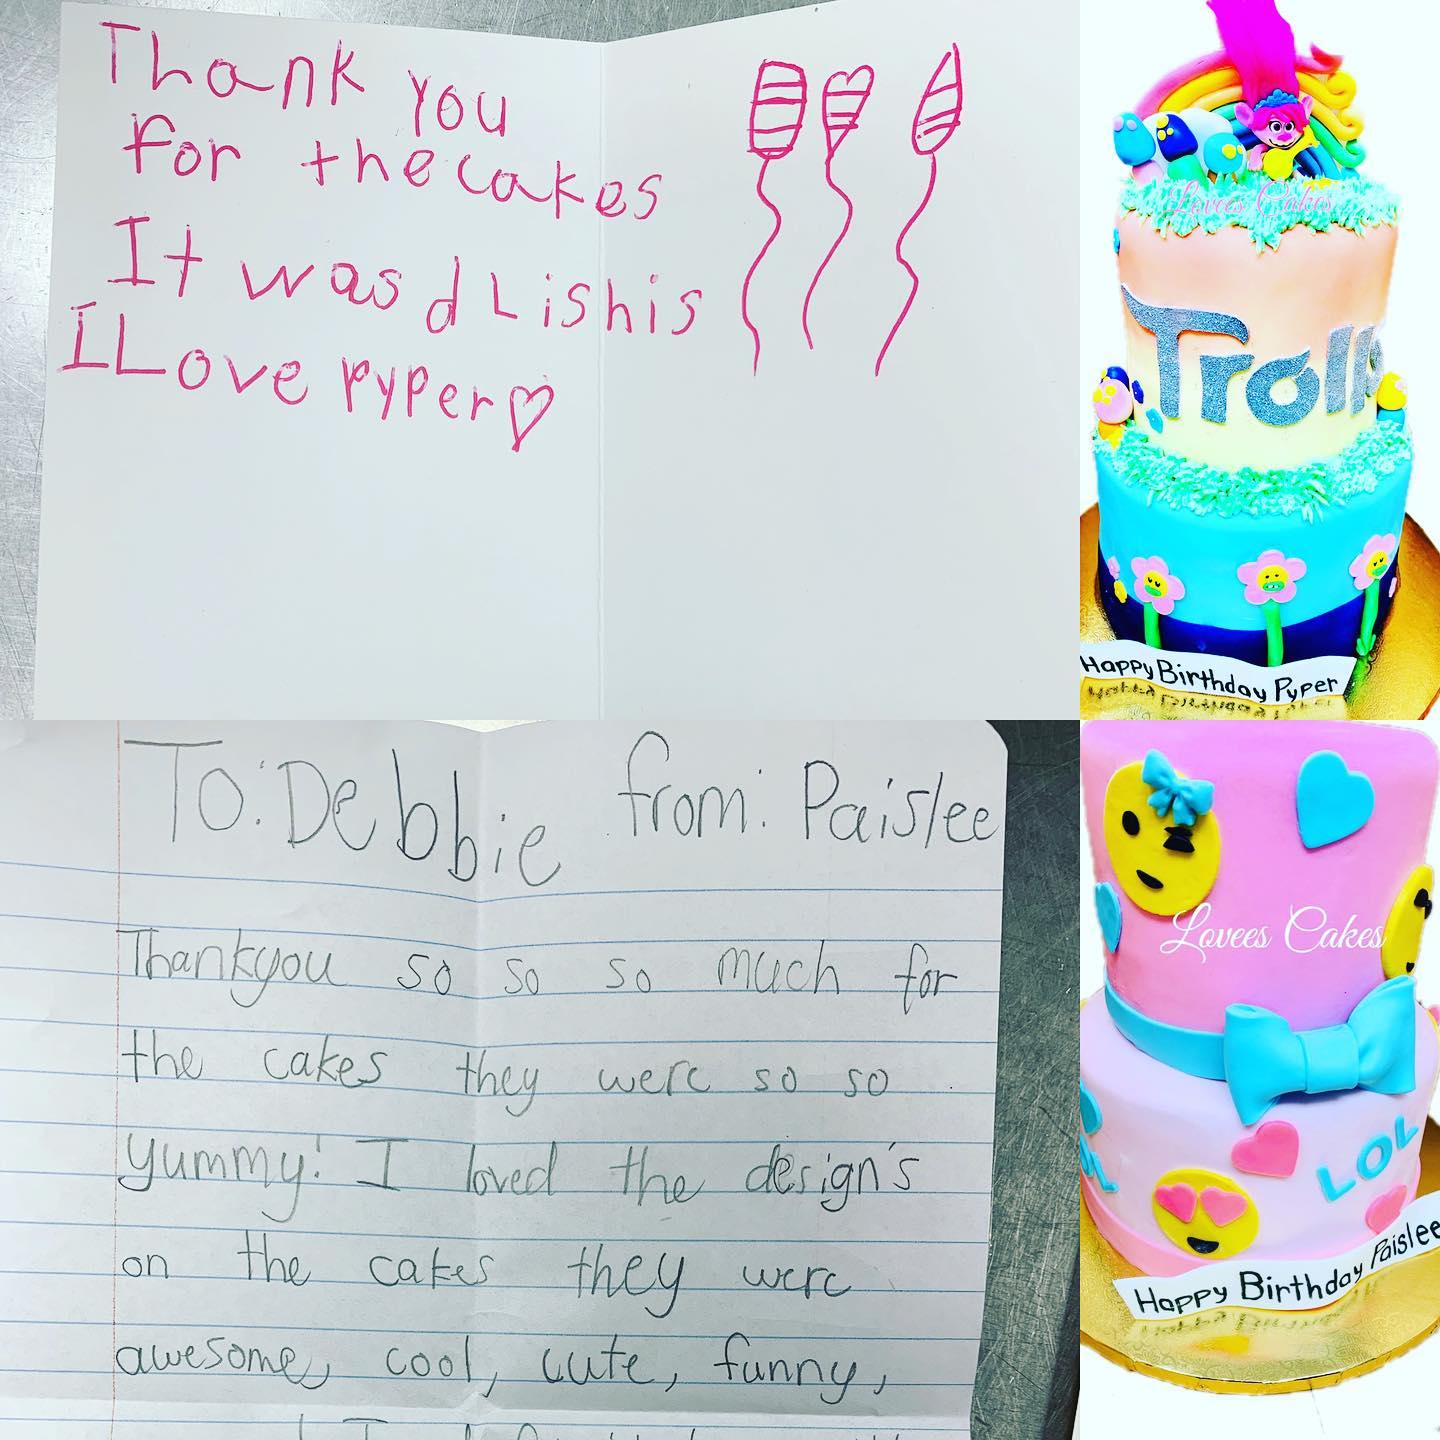 Thank you
for the cakes
It was dLishis
I Love Pyper
Lovees Cakes
Troll
Happy Birthday Pyper
To: Debbie from: Paislee
Thankyou so so so much for
the cakes they were so so
yummy! I loved the design's
on the cakes they were
awesome, cool, cute, funny,
Lovees Cakes
LOL
Happy Birthday Paislee